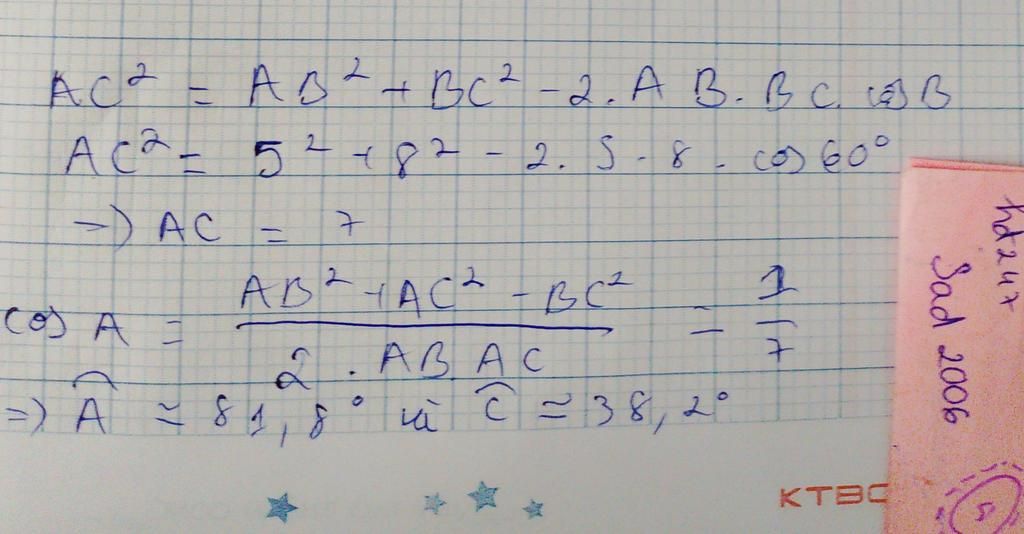 AC² = AB² + BC² - 2. AB. BC. cos B
AC² = 5² + 8² - 2. 5. 8. cos 60°
=> AC = 7
cos A = (AB² + AC² - BC²) / (2. AB AC) = 1/7
=> Â ≈ 81,8° và Ĉ ≈ 38,2°
KTBO
hd247
Sad 2006